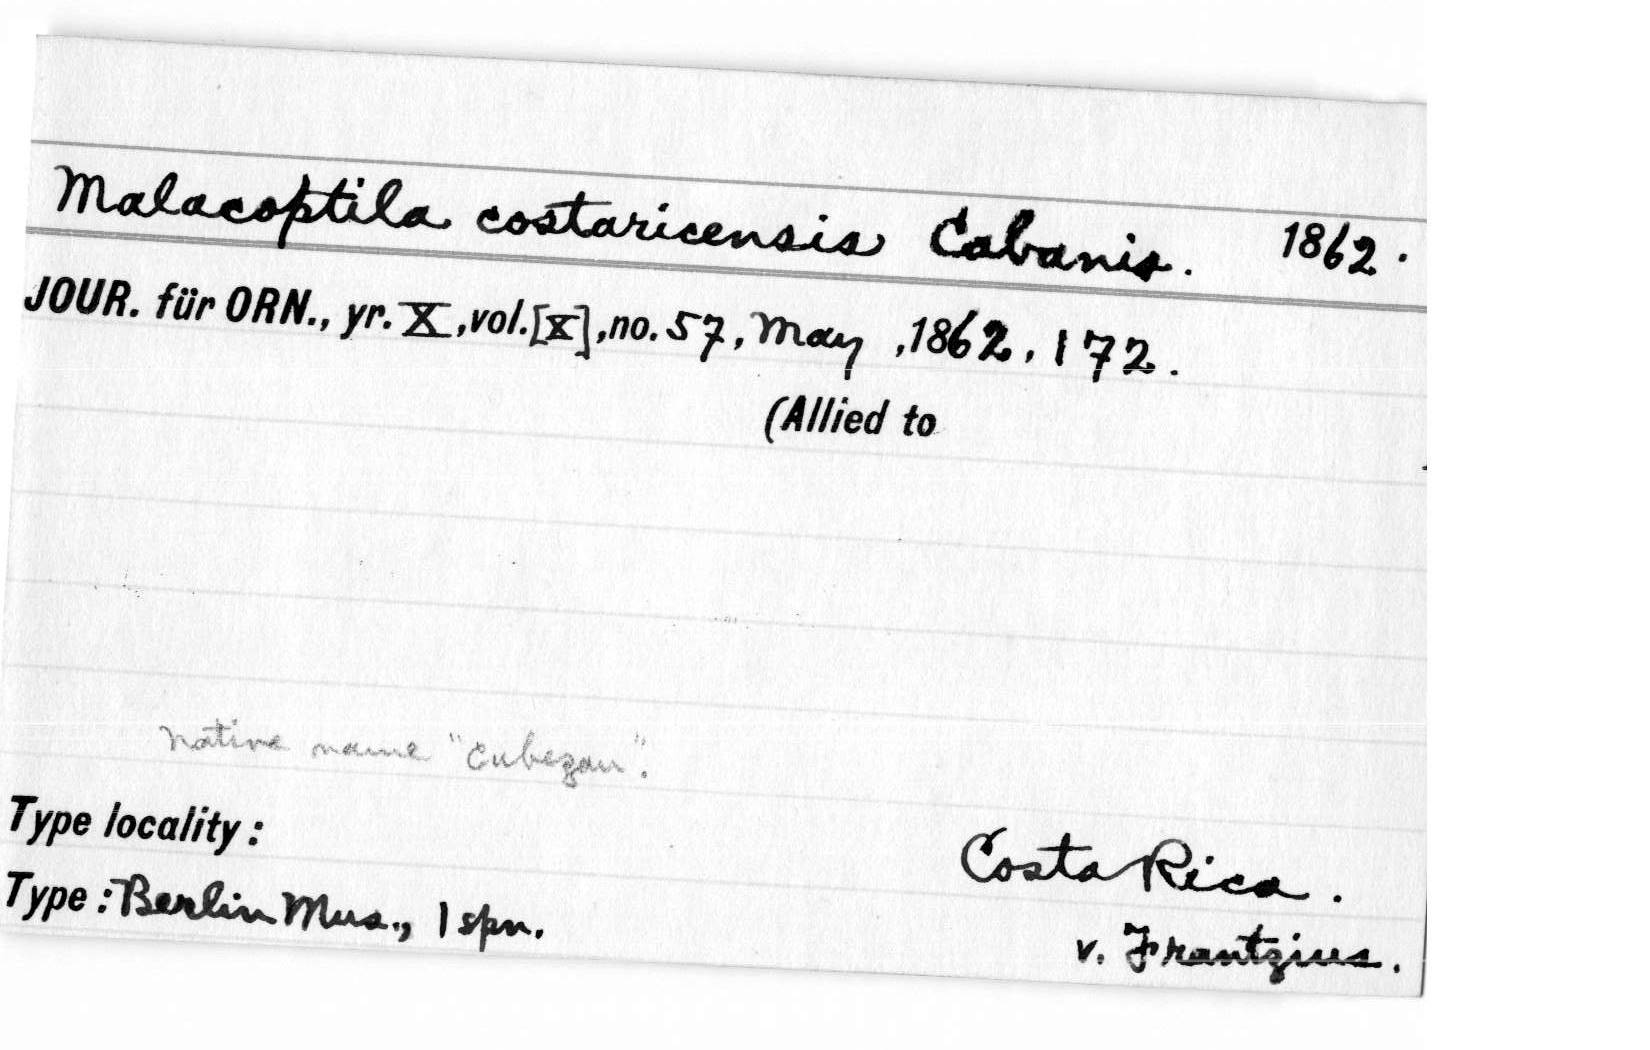 Malacoptila costaricensis Cabanis. 1862.
JOUR. für ORN., yr. X, vol. [X], no. 57, May, 1862, 172.
(Allied to
Native name "Cubezon".
Type locality: Costa Rica.
Type: Berlin Mus., 1 spn. v. Frantzius.